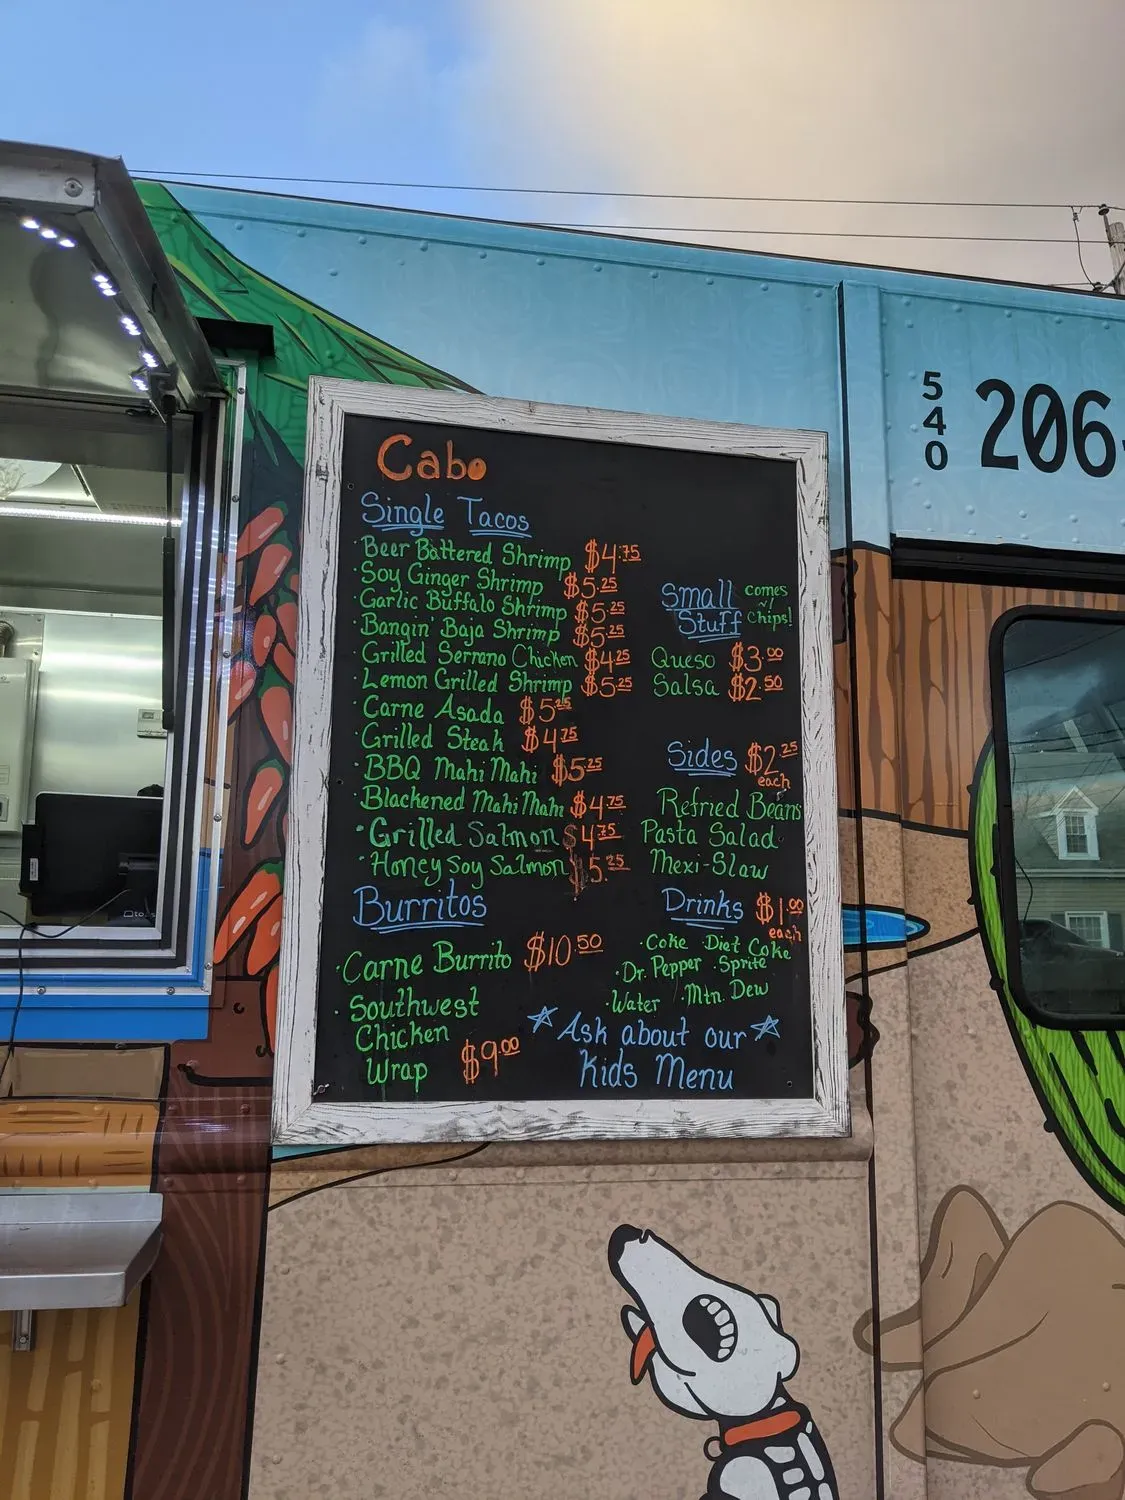 540 206
Cabo
Single Tacos
·Beer Battered Shrimp $4.75
·Soy Ginger Shrimp $5.25
·Garlic Buffalo Shrimp $5.25
·Bangin' Baja Shrimp $5.25
·Grilled Serrano Chicken $4.25
·Lemon Grilled Shrimp $5.25
·Carne Asada $5.25
·Grilled Steak $4.75
·BBQ Mahi Mahi $5.25
·Blackened Mahi Mahi $4.75
·Grilled Salmon $4.75
·Honey Soy Salmon $5.25
Burritos
·Carne Burrito $10.50
·Southwest
Chicken
Wrap $9.00
Small comes
Stuff w/ Chips!
Queso $3.00
Salsa $2.50
Sides $2.25
each
Refried Beans
Pasta Salad
Mexi-Slaw
Drinks $1.00
each
·Coke ·Diet Coke
·Dr. Pepper ·Sprite
·Water ·Mtn. Dew
☆Ask about our☆
Kids Menu